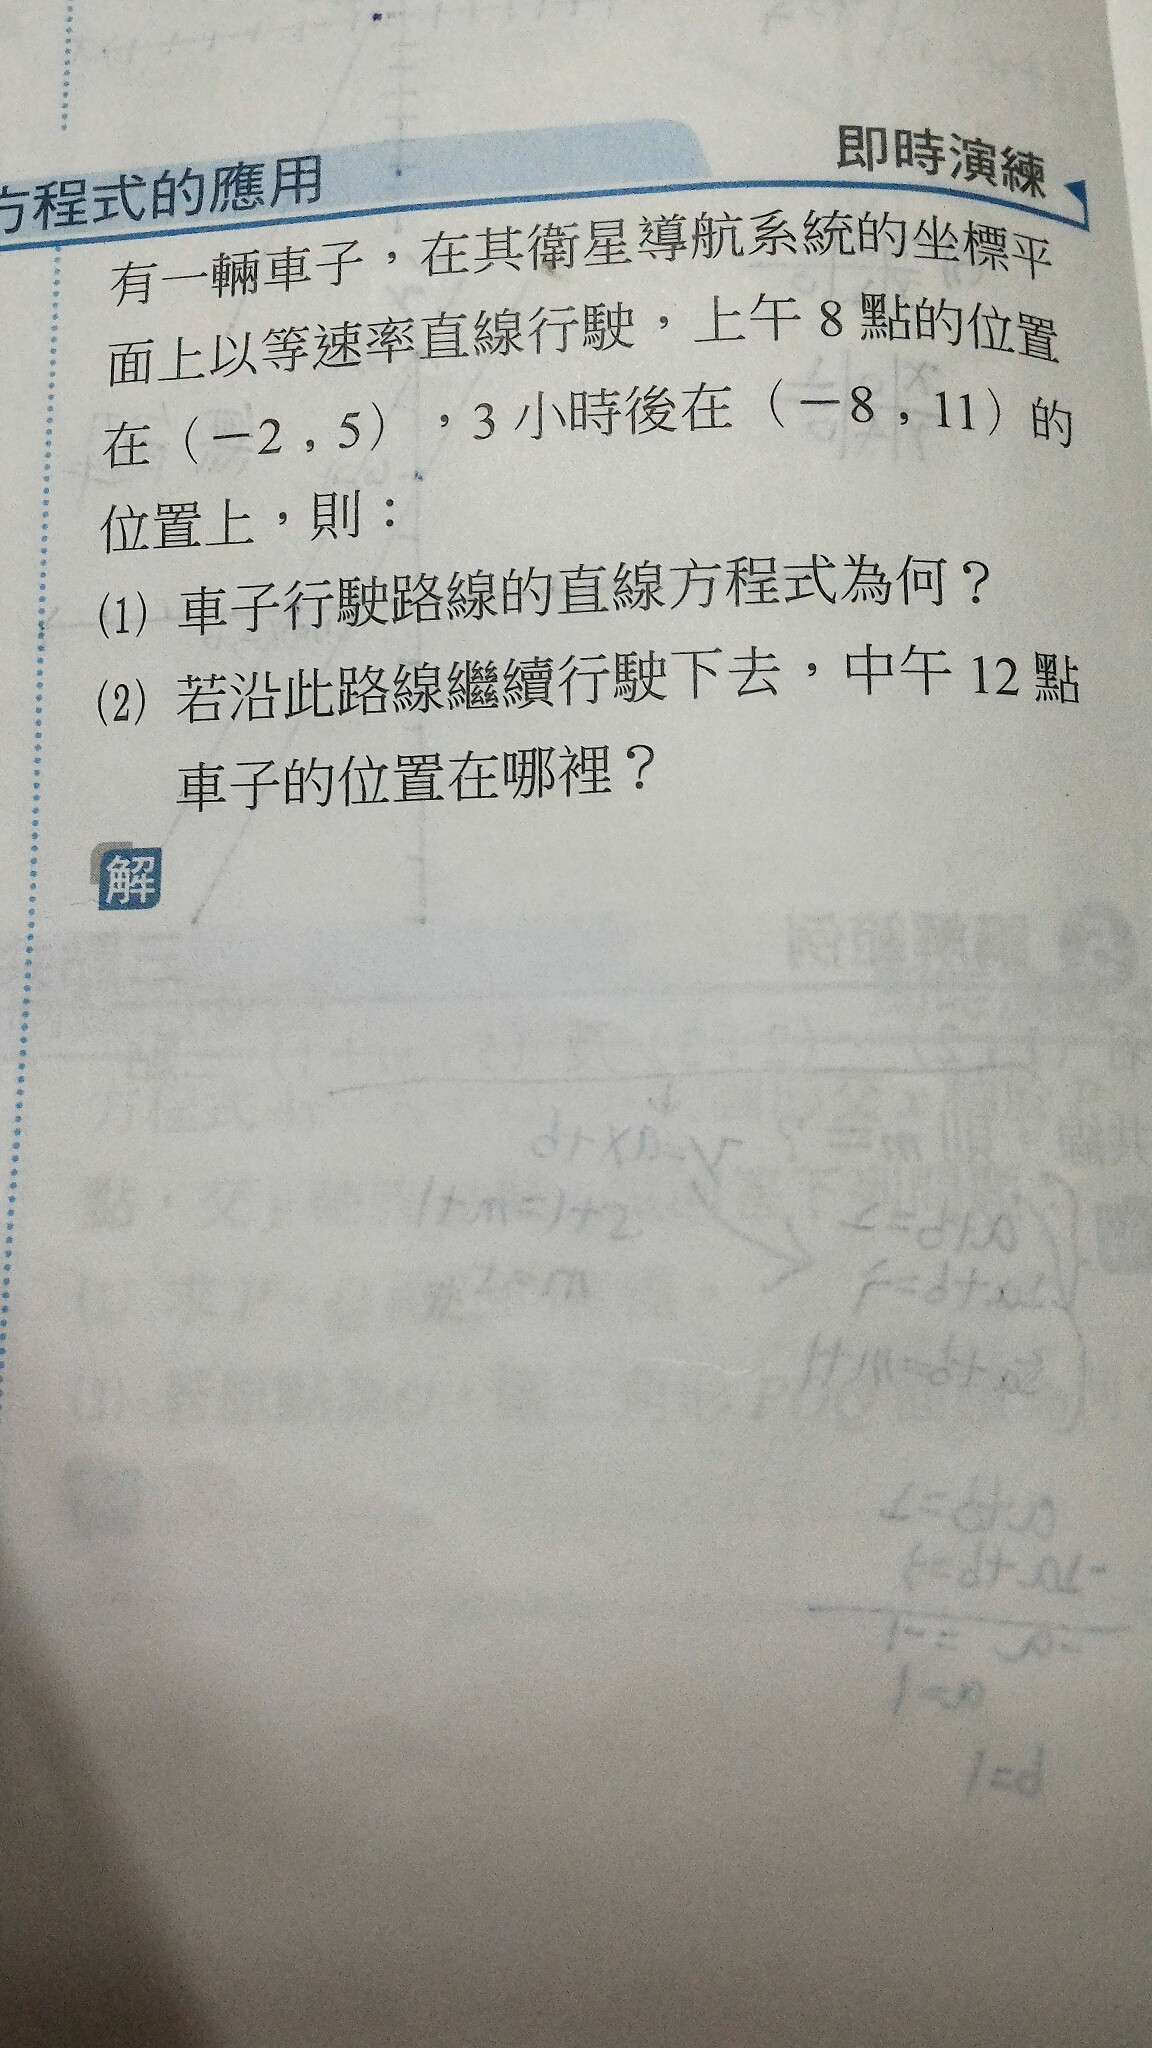 方程式的應用
即時演練
有一輛車子，在其衛星導航系統的坐標平
面上以等速率直線行駛，上午 8 點的位置
在（－2 , 5），3 小時後在（－8 , 11）的
位置上，則：
(1) 車子行駛路線的直線方程式為何？
(2) 若沿此路線繼續行駛下去，中午 12 點
車子的位置在哪裡？
解